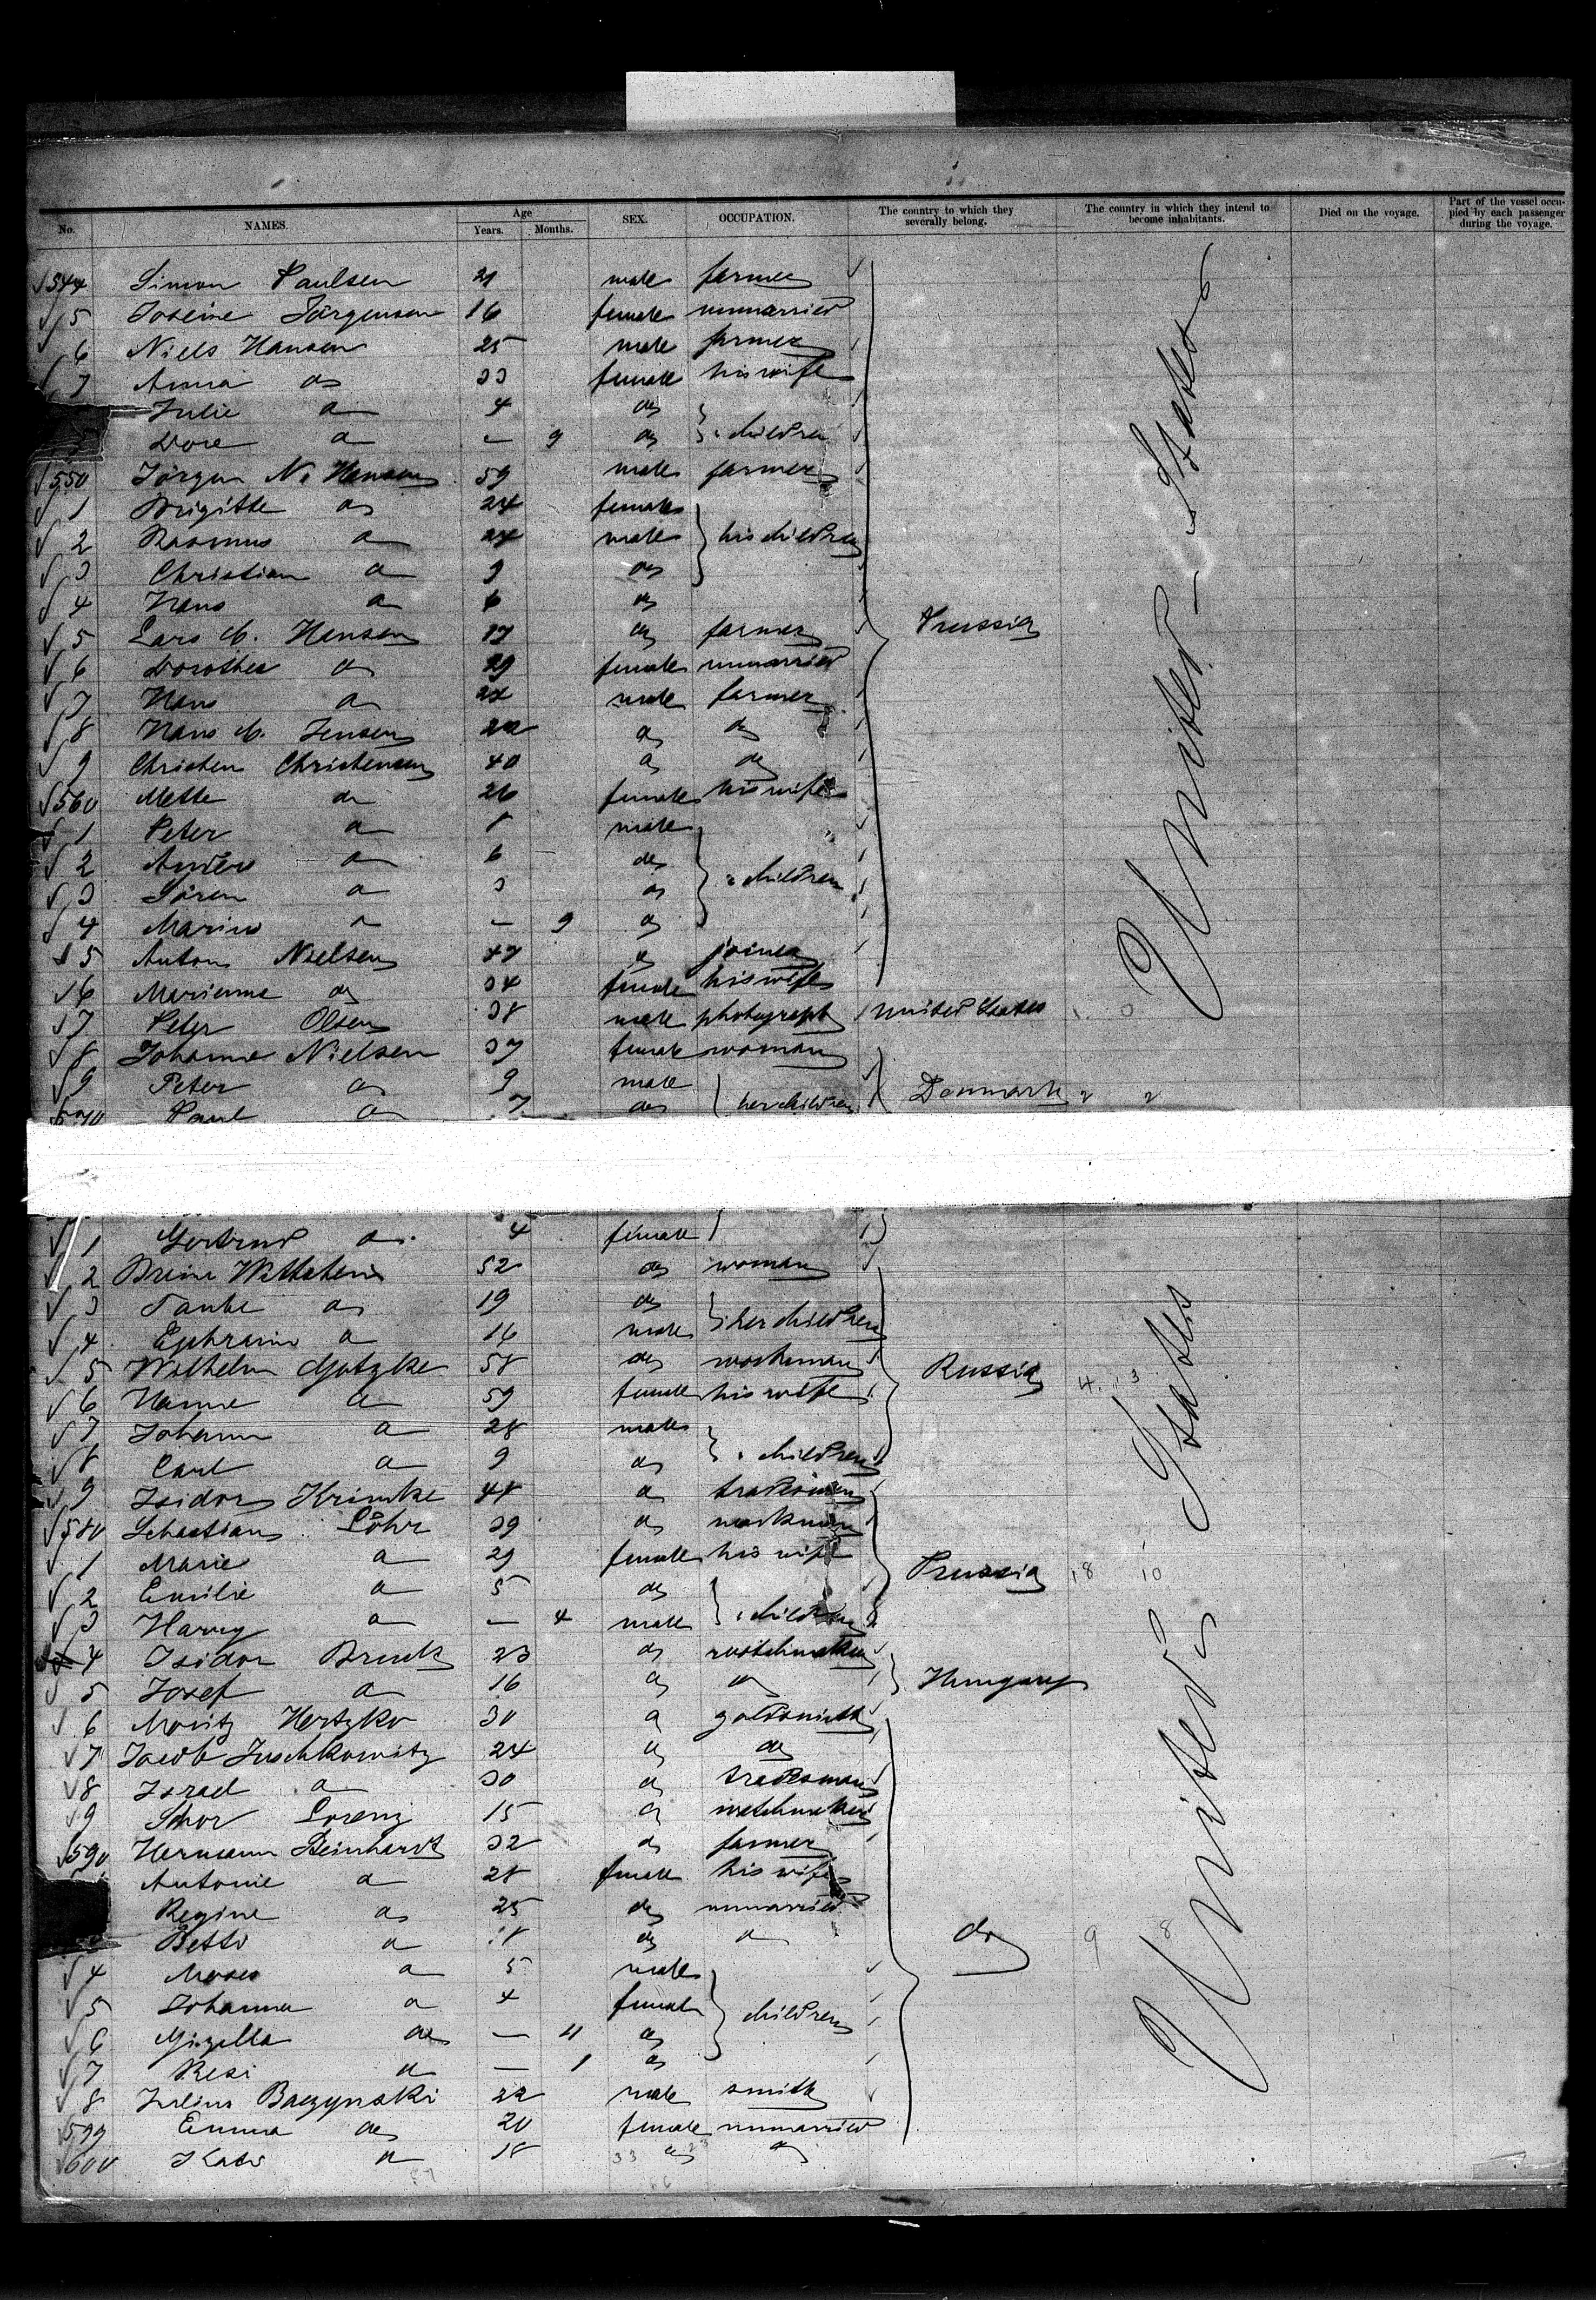 No. NAMES. Age Years. Months. SEX. OCCUPATION. The country to which they severally belong. The country in which they intend to become inhabitants. Died on the voyage. Part of the vessel occupied by each passenger during the voyage.
544 Simon Paulsen 21 male farmer
5 Josefine Jörgensen 16 female unmarried
6 Niels Hansen 25 male farmer
7 Anna do 33 female his wife
Julie do 4 do
Dore do — 9 do children
550 Jörgen N. Hansen 59 male farmer
1 Brigitte do 24 female
2 Rasmus do 24 male his children
3 Christian do 9 do
4 Hans do 6 do
5 Lars M. Hansen 17 do farmer Prussia
6 Dorothea do 29 female unmarried
7 Hans do 24 male farmer
8 Hans M. Jensen 22 do do
9 Christen Christensen 40 do do
560 Mette do 26 female his wife
1 Peter do 8 male
2 Anders do 6 do
3 Sören do 3 do children
4 Marius do — 9 do
5 Anton Nielsen 47 do joiner
6 Marianne do 34 female his wife
7 Peter Olsen 38 male photograph United States
United States
8 Johanne Nielsen 37 female woman
9 Peter do 9 male
570 Paul do 7 do her children Denmark
1 Gertrud do 4 female
2 52 do woman
3 Taube do 19 do
4 Ephraim do 16 male her children
5 Wilhelm Gotzke 58 do workman Russia
6 Hanne do 59 female his wife
7 Johann do 28 male
8 Carl do 9 do children
9 Isidor Krimke 48 do tradesman
580 Sebastian Löhr 39 do workman
1 Marie do 29 female his wife Prussia 18 10
2 Emilie do 5 do
3 Harry do — 4 male children
4 Isidor Bruck 23 do watchmaker
5 Josef do 16 do do Hungary
6 Moritz Hertzko 30 do goldsmith
7 Jacob Juschkowitz 24 do do
8 Israel do 30 do tradesman
9 Lorenz 15 do watchmaker
590 Hermann Beinhardt 32 do farmer
Antonie do 28 female his wife
Regine do 25 do unmarried
Betti do 18 do do do 9 8
4 Moses do 5 male
5 Johanna do 4 female children
6 Gizella do — 11 do
7 Resi do — 1 do
8 Julius Baczynski 22 male smith
599 Emma do 20 female unmarried
600 do 18 do do
United States